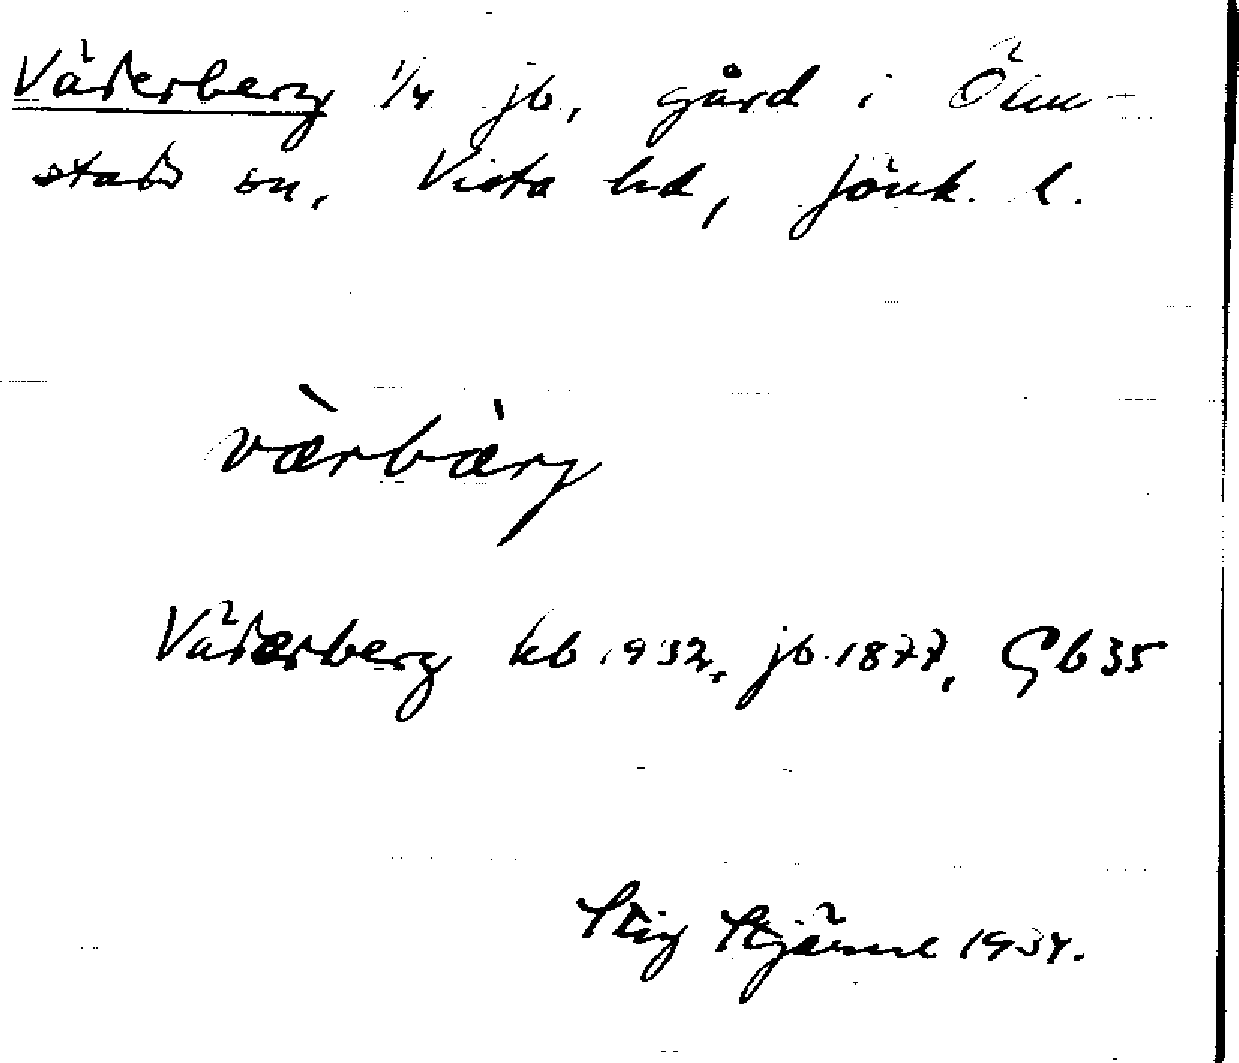 Väderberg 1/4 jb, gård i Ölm-
stads sn, Vista hd, Jönk. l.
værbærj
Väderberg kb 1932, jb 1877, Gb 35
Stig Stjärne 1934.